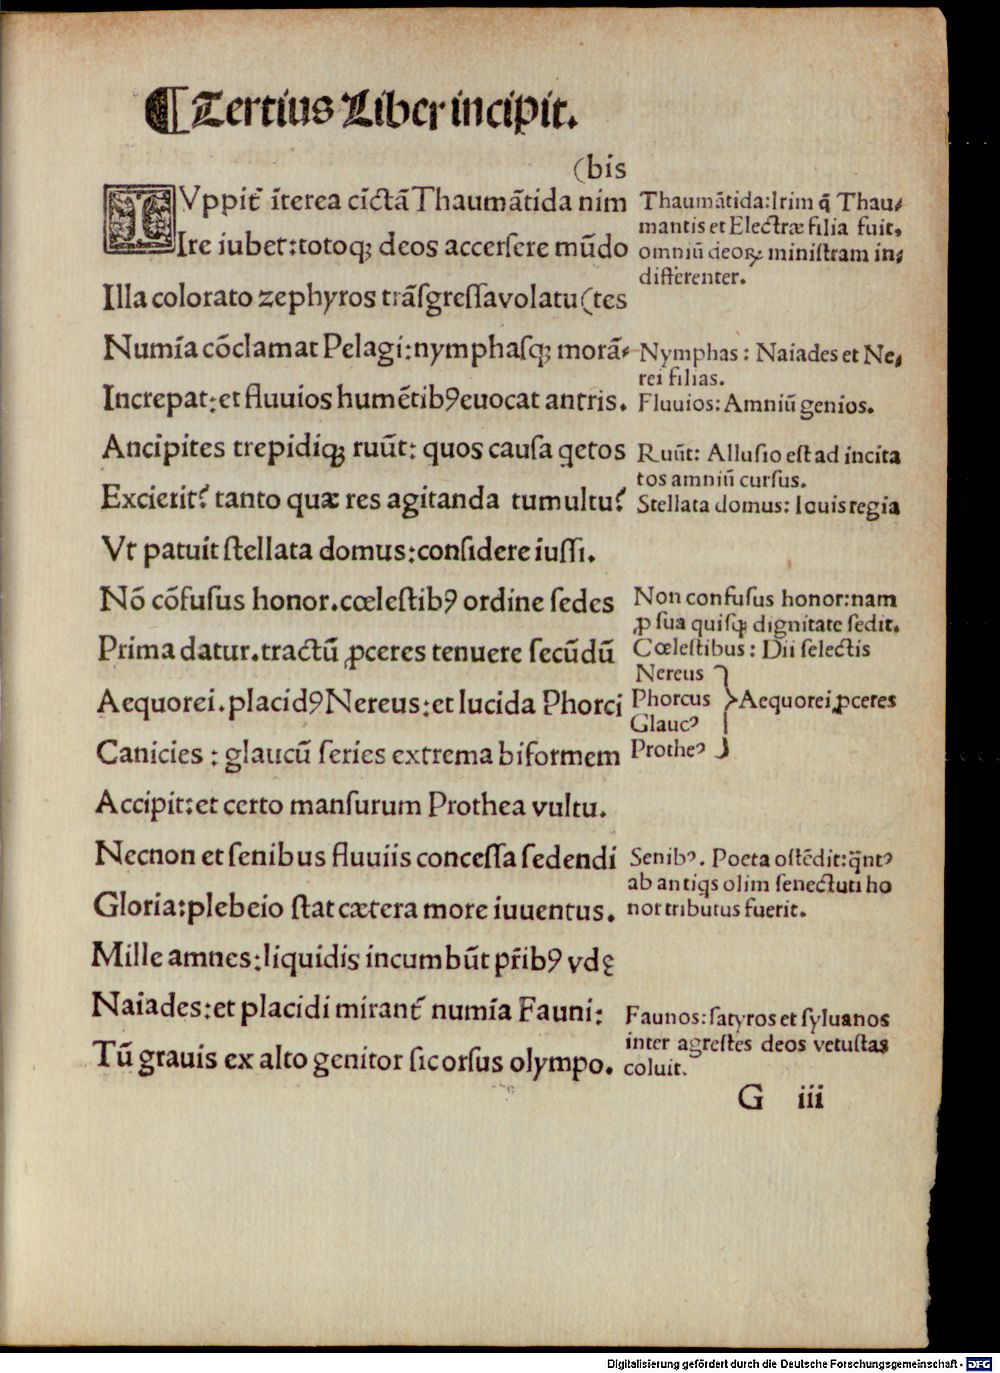 ¶ Tertius Liber incipit.
(bis
IVppit̃ ĩterea cĩctã Thaumãtida nim
Ire iubet:totoqꝫ deos accersere mũdo
Illa colorato zephyros trãsgressa volatu (tes
Numĩa cõclamat Pelagi:nymphasqꝫ morã-
Increpat:et fluuios humẽtibꝰ euocat antris.
Ancipites trepidiqꝫ ruũt: quos causa qetos
Excierit? tanto quæ res agitanda tumultu?
Vt patuit stellata domus:considere iussi.
Nõ cõfusus honor.cœlestibꝰ ordine sedes
Prima datur.tractũ ꝓceres tenuere secũdũ
Aequorei.placidꝰ Nereus:et lucida Phorci
Canicies : glaucũ series extrema biformem
Accipit:et certo mansurum Prothea vultu.
Necnon et senibus fluuiis concessa sedendi
Gloria:plebeio stat cætera more iuuentus.
Mille amnes:liquidis incumbũt pr̃ibꝰ vdę
Naiades:et placidi mirant̃ numĩa Fauni:
Tũ grauis ex alto genitor sic orsus olympo.
Thaumãtida:Irim q̃ Thau-
mantis et Electræ filia fuit,
omniũ deoꝝ ministram in-
differenter.
Nymphas : Naiades et Ne-
rei filias.
Fluuios: Amniũ genios.
Ruũt: Allusio est ad incita
tos amniũ cursus.
Stellata domus: Iouis regia
Non confusus honor:nam
ꝓ sua quisqꝫ dignitate sedit.
Cœlestibus : Dii selectis
Nereus
Phorcus } Aequorei ꝓceres
Glaucꝰ
Protheꝰ
Senibꝰ. Poeta ostẽdit:q̃ntꝰ
ab antiqs olim senectuti ho
nor tributus fuerit.
Faunos: satyros et syluanos
inter agrestes deos vetustas
coluit.
G iii
Digitalisierung gefördert durch die Deutsche Forschungsgemeinschaft - DFG